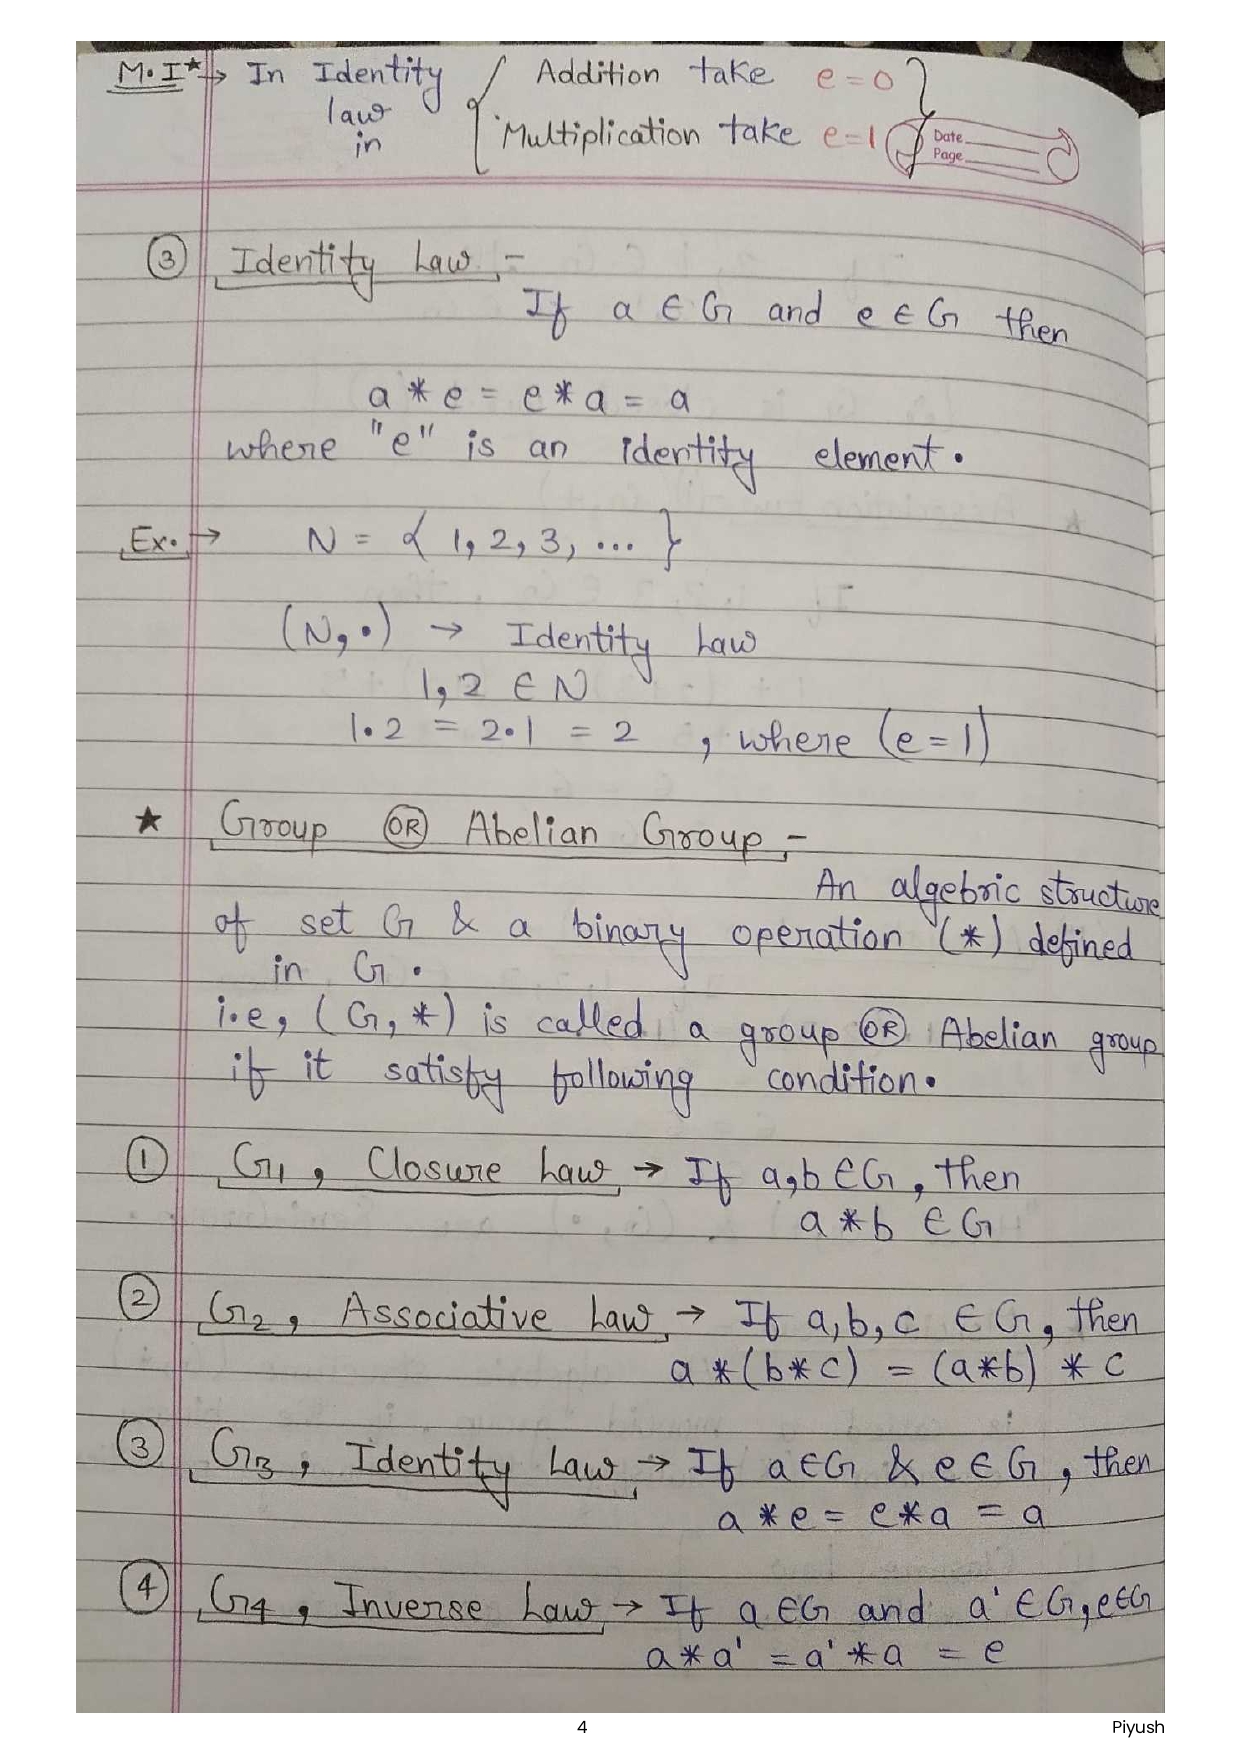 M.I* → In Identity law in { Addition take e = 0
Multiplication take e = 1 }
Date
Page
③ Identity Law -
If a ∈ G and e ∈ G then
a * e = e * a = a
where "e" is an identity element.
Ex. → N = { 1, 2, 3, ... }
(N, •) → Identity Law
1, 2 ∈ N
1•2 = 2•1 = 2 , where (e = 1)
★ Group OR Abelian Group -
An algebric structure
of set G & a binary operation (*) defined
in G .
i.e, (G, *) is called a group OR Abelian group
if it satisfy following condition.
① G₁ , Closure Law → If a,b ∈ G , then
a * b ∈ G
② G₂ , Associative Law → If a, b, c ∈ G, then
a * (b * c) = (a * b) * c
③ G₃ , Identity Law → If a ∈ G & e ∈ G , then
a * e = e * a = a
④ G₄ , Inverse Law → If a ∈ G and a' ∈ G, e ∈ G
a * a' = a' * a = e
4
Piyush